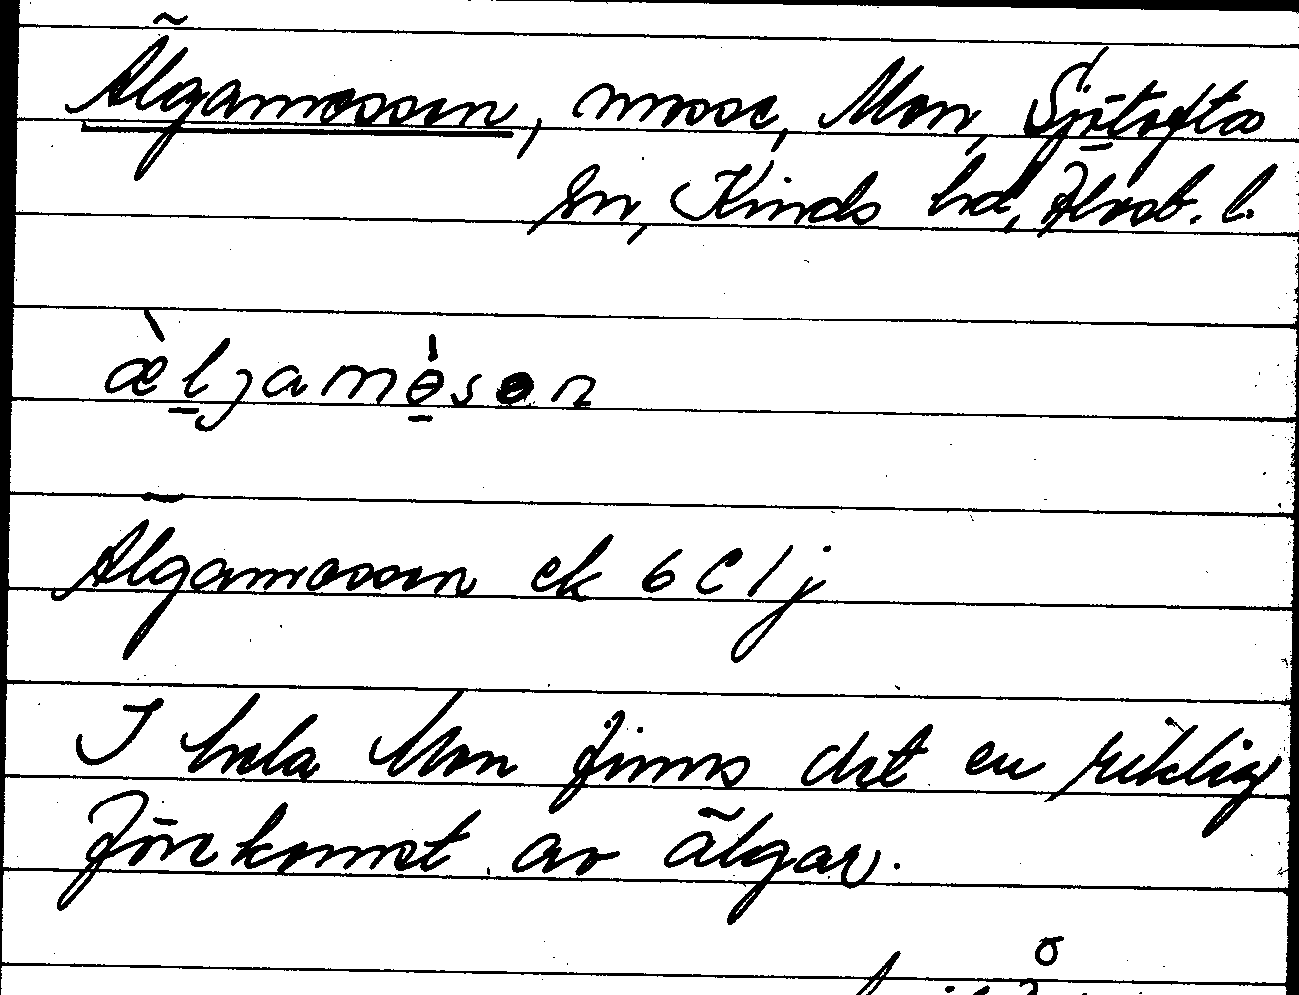 Älgamossen, mosse, Mon, Sjötofta
sn, Kinds hd, Älvsb. l.
æ̀ḷjamө̣̀sen
Älgamossen ek 6 C 1 j
I hela Mon finns det en riklig
förekomst av älgar.